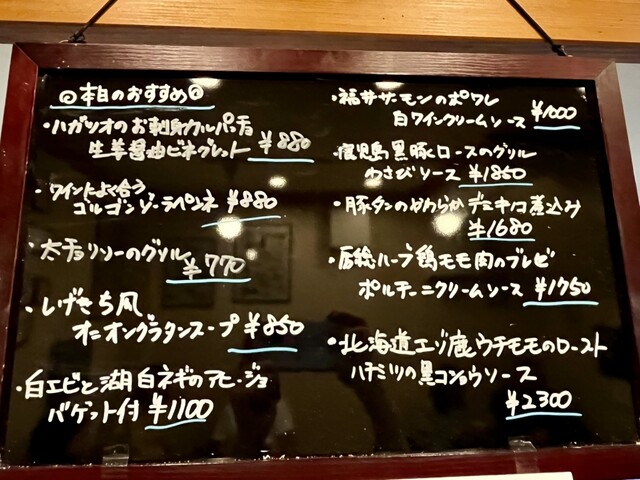 ◎本日のおすすめ◎
・ハガツオのお刺身カルパッチョ
生姜醤油ビネグレット ¥880
・ワインによく合う、
ゴルゴンゾーラペンネ ¥880
・太チョリソーのグリル
¥770
・しげきち風
オニオングラタンスープ ¥850
・白エビと湖白ネギのアヒージョ
バゲット付 ¥1100
・福井サーモンのポワレ
白ワインクリームソース ¥1000
・鹿児島黒豚ロースのグリル
わさびソース ¥1850
・豚タンのやわらかデミキノコ煮込み
¥1680
・房総ハーブ鶏モモ肉のブレゼ
ポルチーニクリームソース ¥1750
・北海道エゾ鹿ウチモモのロースト
ハチミツの黒コショウソース
¥2300